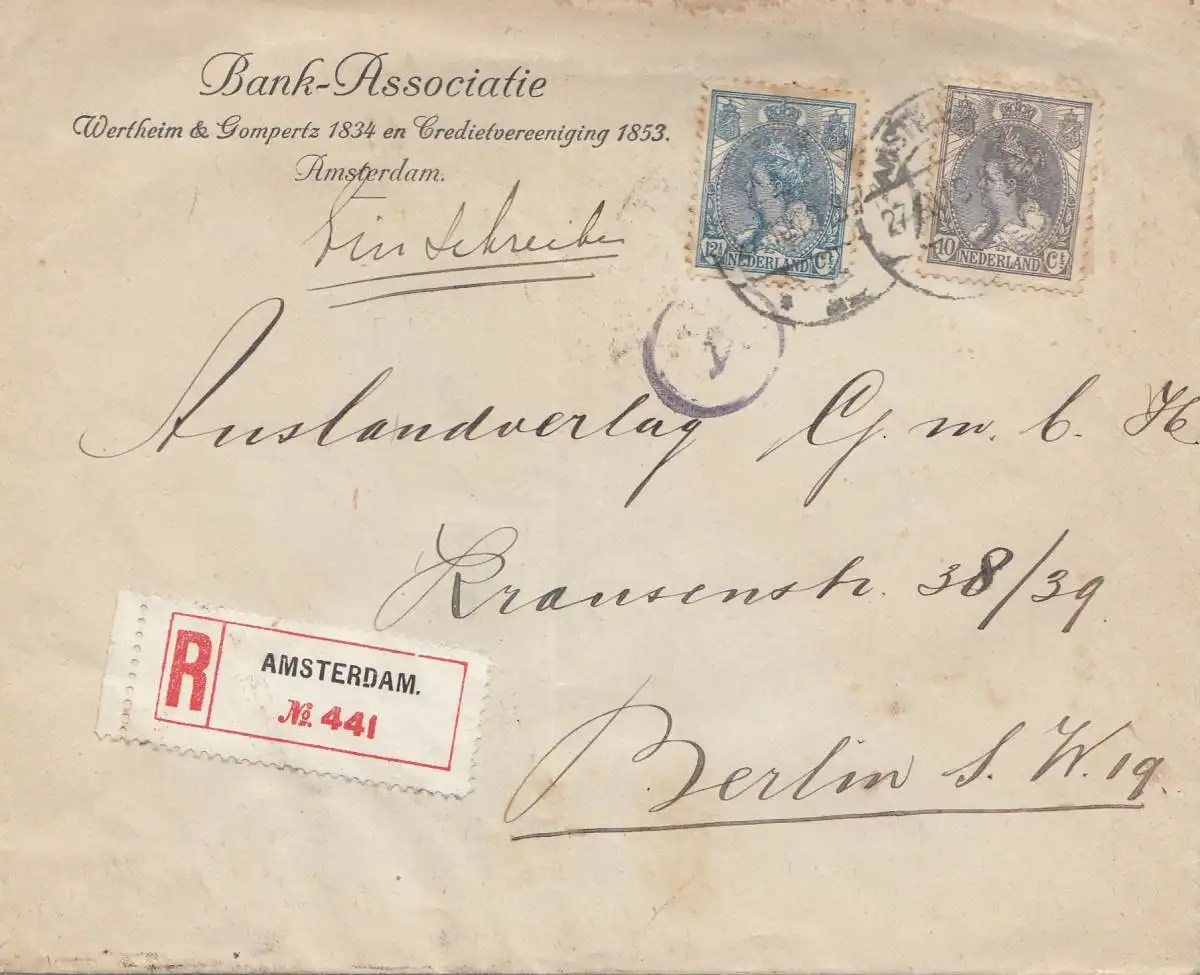 Bank-Associatie
Wertheim & Gompertz 1834 en Credietvereeniging 1853.
Amsterdam.
Einschreiben
12½ NEDERLAND Ct
10 NEDERLAND Ct
27
Auslandverlag G. m. b. H.
Krausenstr. 38/39
R AMSTERDAM.
№ 441
Berlin S. W. 19